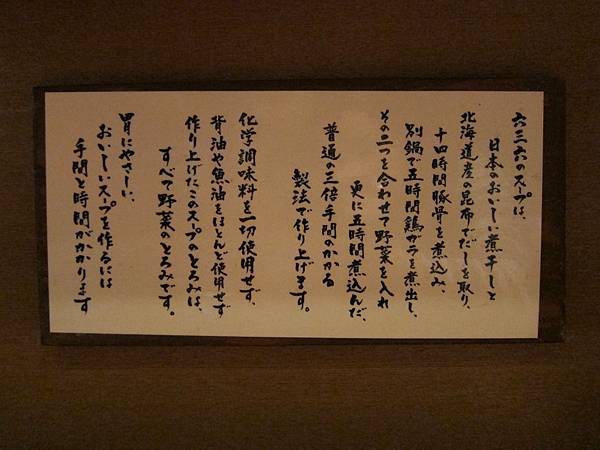 六三六のスープは、
日本のおいしい煮干しと
北海道産の昆布でだしを取り、
十四時間豚骨を煮込み、
別鍋で五時間鶏ガラを煮出し、
その二つを合わせて野菜を入れ
更に五時間煮込んだ、
普通の三倍手間のかかる
製法で作り上げます。
化学調味料を一切使用せず、
背油や魚油をほとんど使用せず
作り上げたこのスープのとろみは、
すべて野菜のとろみです。
胃にやさしい、
おいしいスープを作るには
手間と時間がかかります